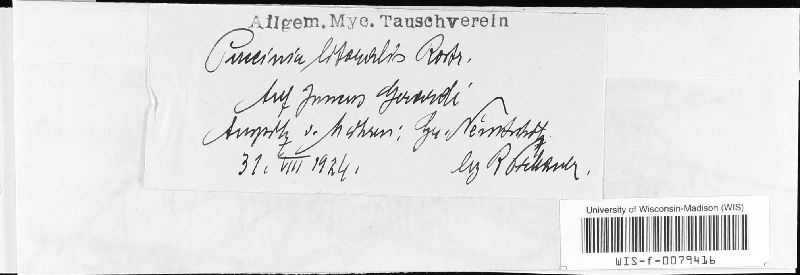 Allgem. Myc. Tauschverein
Puccinia litoralis Rostr.
Auf Juncus Gerardi
Auspitz i. Mähren: Gr. Niemtschitz
31. VIII 1924. lg R Picbauer.
University of Wisconsin-Madison (WIS)
WIS-f-0079416